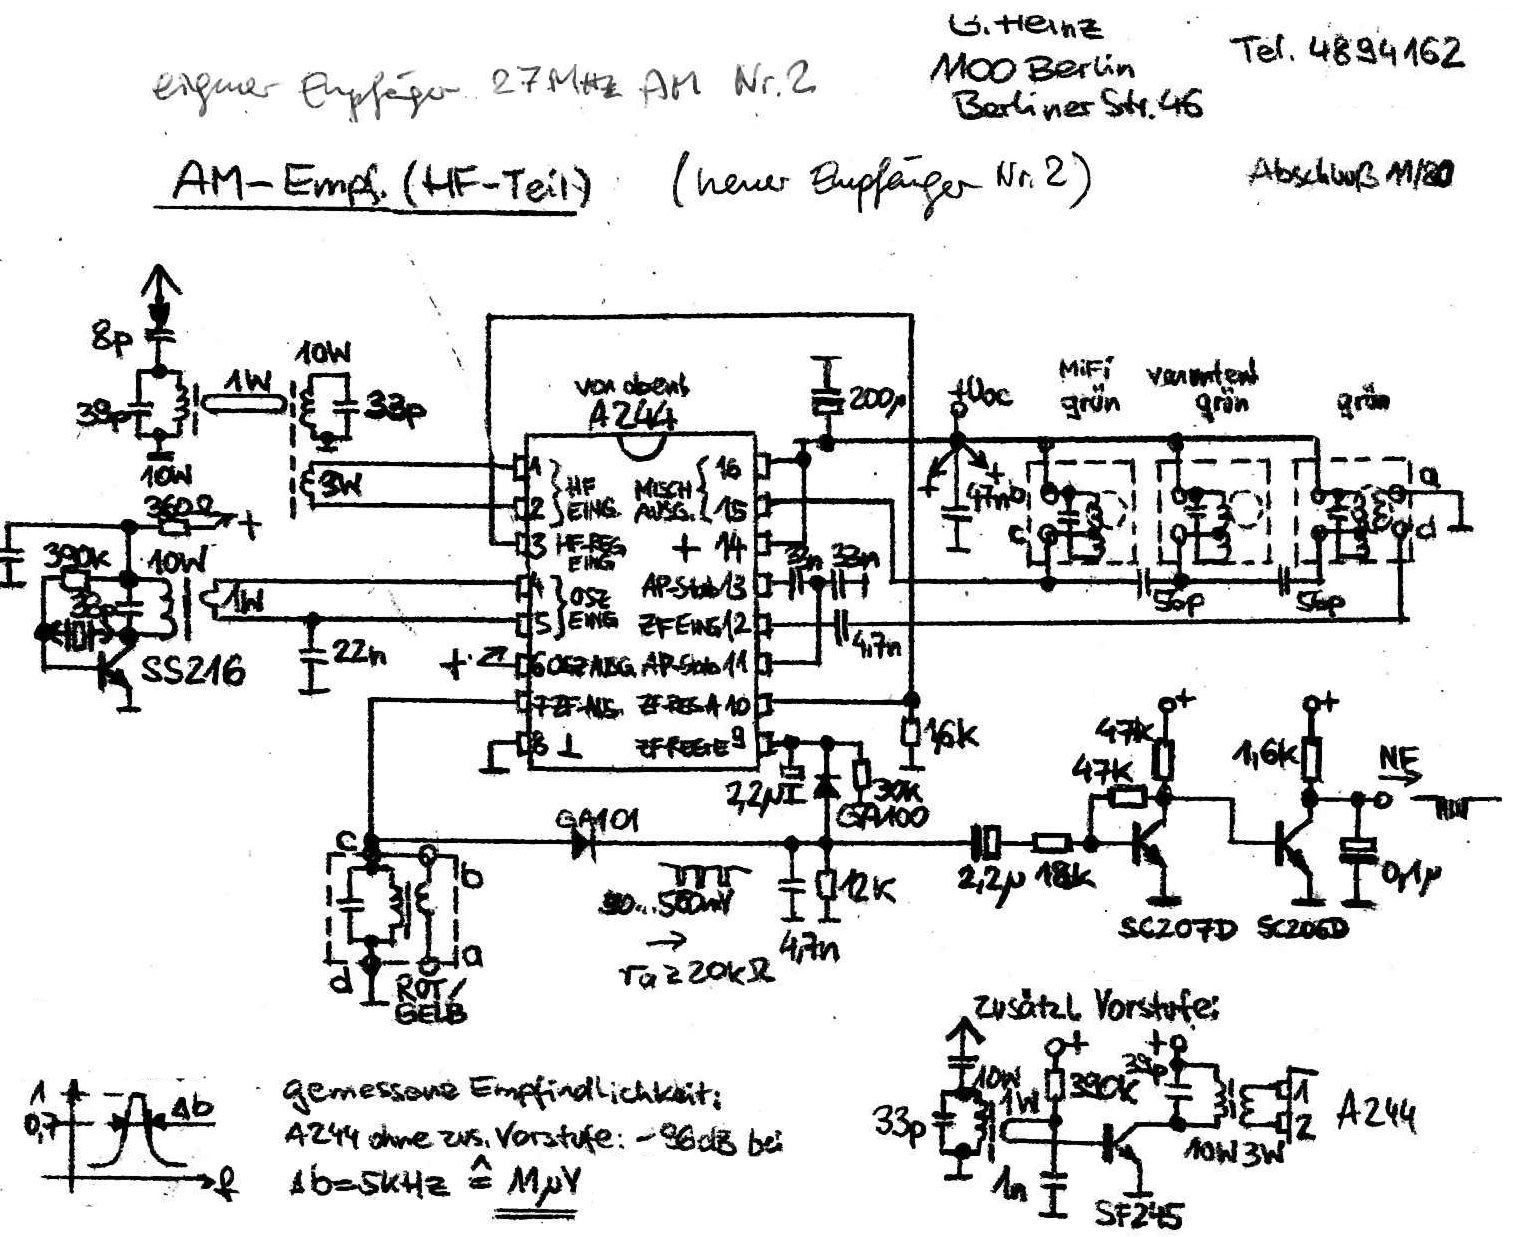 G. Heinz
1100 Berlin
Berliner Str. 46
Tel. 4894162
eigner Empfänger 27MHz AM Nr.2
AM-Empf. (HF-Teil) (neuer Empfänger Nr.2)
Abschluß 11/80
8p
39p
1W
10W
33p
10W
3W
360Ω
+
390k
10W
33p
1W
SS216
22n
von oben!
A244
1
2
HF
EING.
3
HF-REG
EING
4
5
OSZ
EING
6 OSZ AUSG
7 ZF-AUS.
8 ⊥
MISCH
AUSG.
16
15
+ 14
AP-Stab 13
ZF EING 12
AP-Stab 11
ZF-REG A 10
ZF REG E 9
+
200µ
+U
47n
+
+
MiFi
grün
von unten!
grün
grün
b
c
a
d
33n
33n
56p
56p
4,7n
1,6k
2,2µ
30k
GA100
GA101
c
b
d
a
ROT/
GELB
50...500mV
ra ≥ 20kΩ
4,7n
12k
2,2µ
18k
47k
47k
+
SC207D
1,6k
+
SC206D
NF
0,1µ
1
0,7
Δb
f
gemessene Empfindlichkeit:
A244 ohne zus. Vorstufe: -96dB bei
Δb=5kHz ≙ 11µV
zusätzl. Vorstufe:
33p
10W
1W
+
390k
1n
39p
+
10W
3W
SF245
1
2
A244